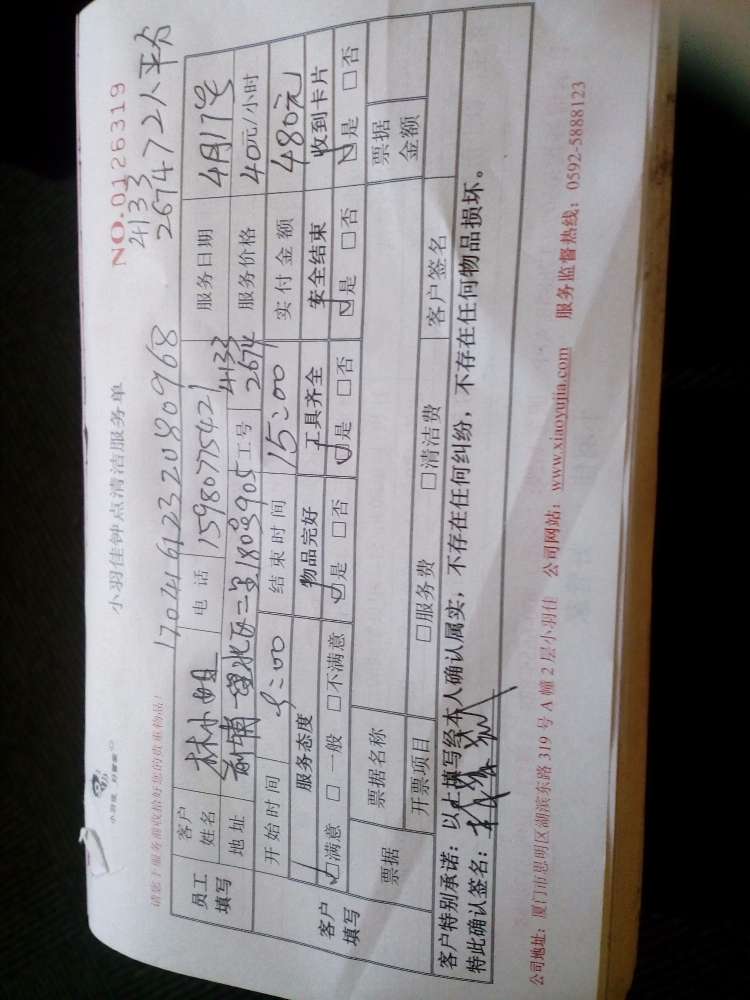 小羽佳钟点清洁服务单
NO.0126319
4133
1704161232080968
26747 2人平分
请您于服务前收拾好您的贵重物品!
员工填写 客户姓名 林小姐 电话 15980775421 服务日期 4月17号
地址 二里180号905 工号 4133 2674 服务价格 40元/小时
开始时间 9:00 结束时间 15:00 实付金额 480元
客户填写 服务态度 物品完好 工具齐全 安全结束 收到卡片
☑满意 □一般 □不满意 ☑是 □否 ☑是 □否 ☑是 □否 ☑是 □否
票据 票据名称 票据金额
开票项目 □服务费 □清洁费 客户签名
客户特别承诺:以上填写经本人确认属实,不存在任何纠纷,不存在任何物品损坏。
特此确认签名:
公司地址:厦门市思明区湖滨东路319号A幢2层小羽佳 公司网站:www.xiaoyujia.com 服务监督热线:0592-5888123